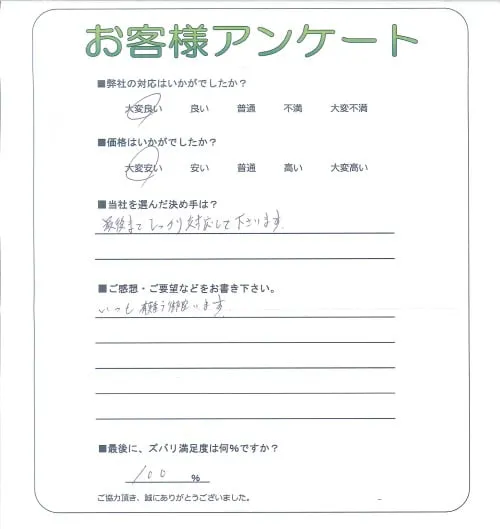 お客様アンケート
■弊社の対応はいかがでしたか？
大変良い 良い 普通 不満 大変不満
■価格はいかがでしたか？
大変安い 安い 普通 高い 大変高い
■当社を選んだ決め手は？
最後までしっかり対応して下さいます。
■ご感想・ご要望などをお書き下さい。
いつも有難う御座います。
■最後に、ズバリ満足度は何%ですか？
100 %
ご協力頂き、誠にありがとうございました。